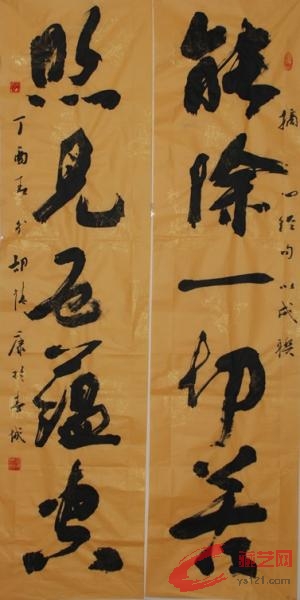 能除一切苦
摘心經句以成聯
照見五蘊空
丁酉
康於
艺网
ys121.com